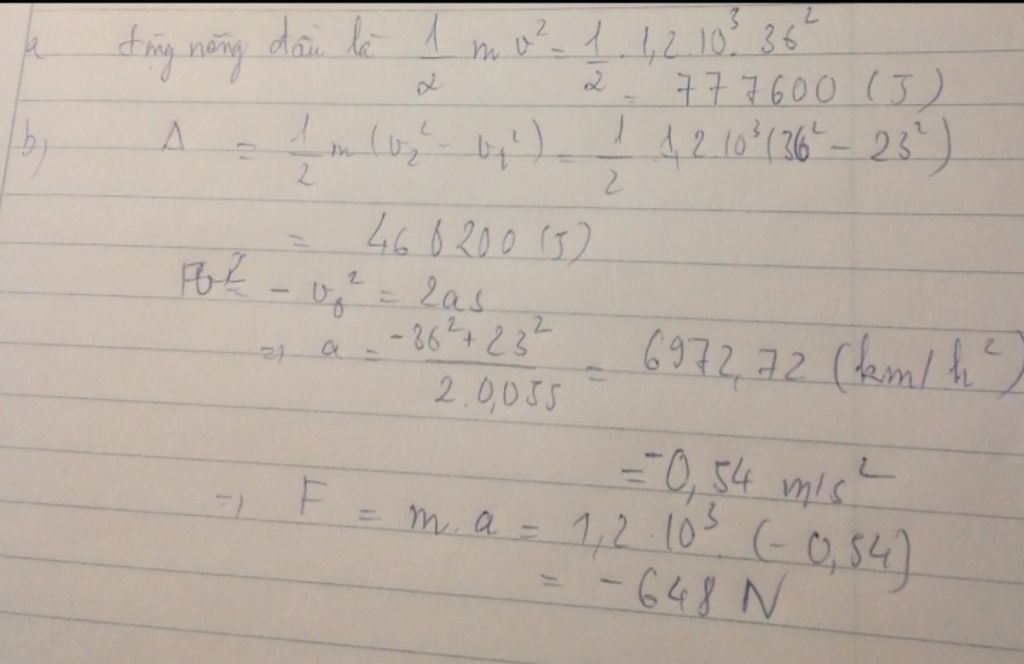 a động năng đầu là 1/2 m v² = 1/2 . 1,2.10³. 36²
= 777600 (J)
b) Δ = 1/2 m (v₂² - v₁²) = 1/2 1,2.10³(36² - 23²)
= 460200 (J)
v² - v₀² = 2as
=> a = -36² + 23² / 2.0,055 = 6972,72 (km/h²)
= -0,54 m/s²
=> F = m.a = 1,2.10³ (-0,54)
= -648 N